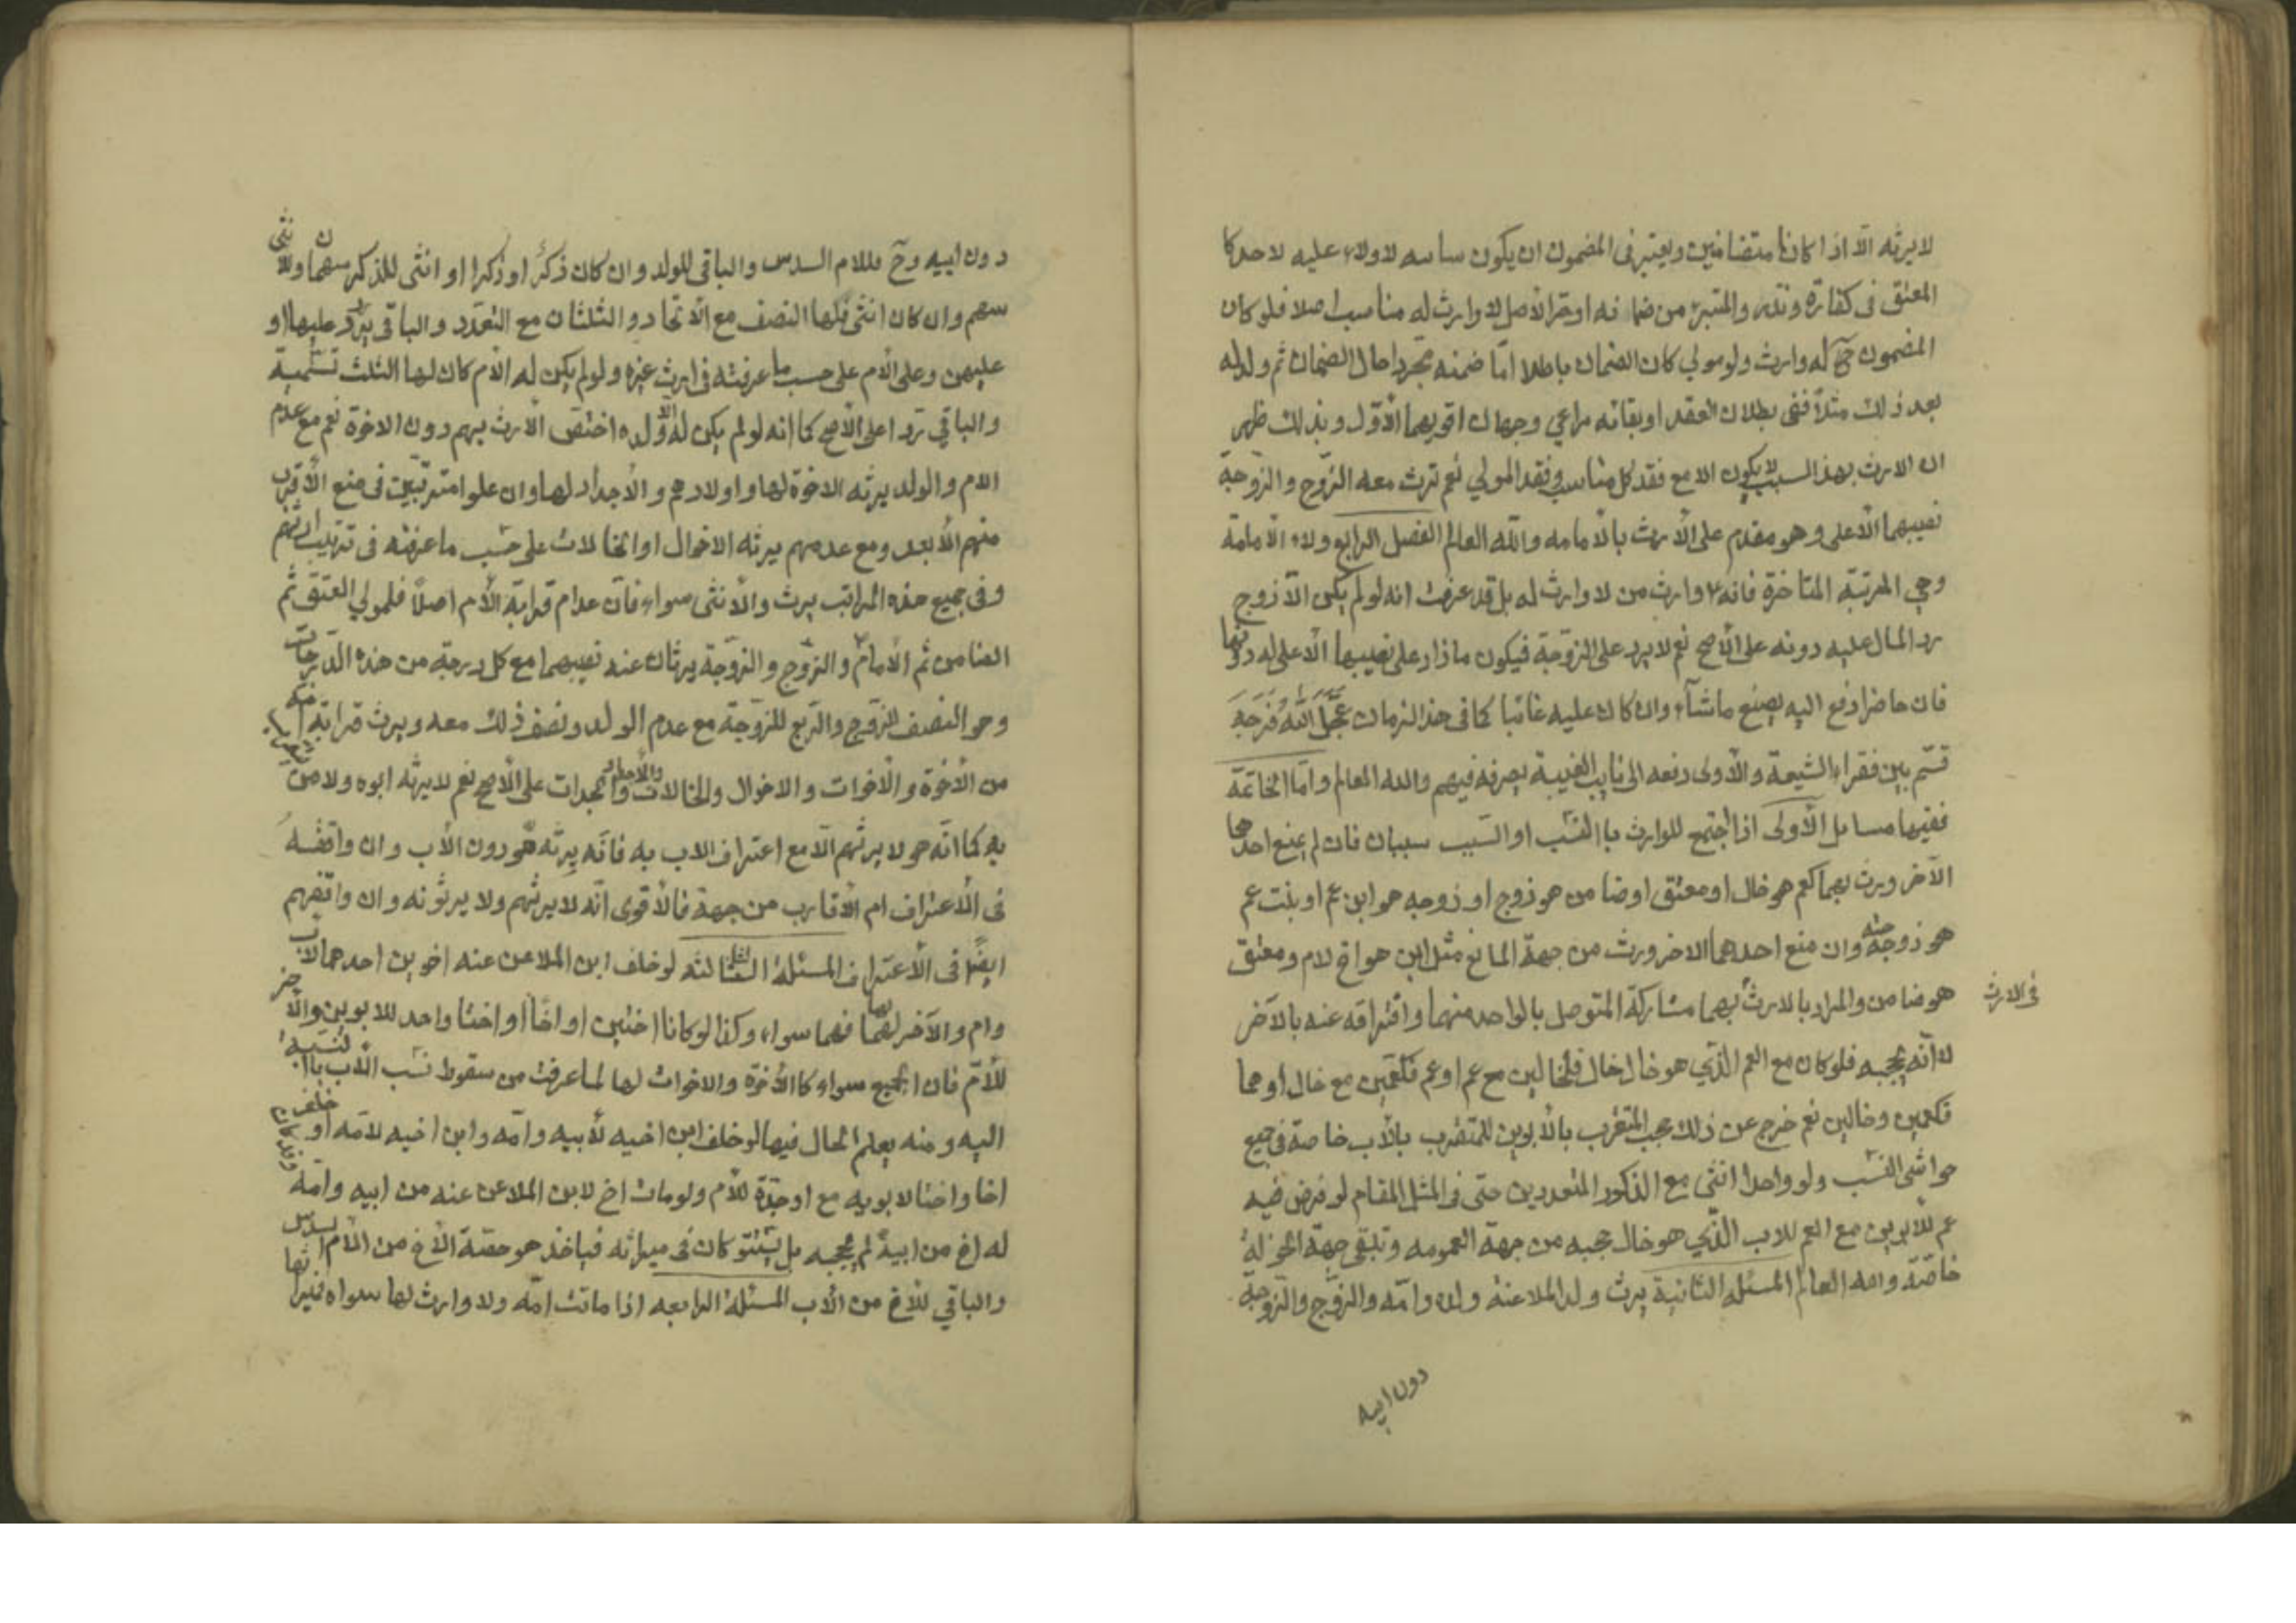 لايرثه الا اذا كانا متضامنين ويعتبر في المضمون ان يكون سائبه لاولاء عليه لاحد كا
المعتق في كفارة ونذر والمتبرئ من ضمانه او حر الاصل لاوارث له مناسب اصلا فلو كان
المضمون ح له وارث ولو مولي كان الضمان باطلا امّا ضمنه مجردا حال الضمان ثم ولد له
بعد ذلك مثلاً ففي بطلان العقد او بقائه مراعي وجهان اقويهما الأوّل وبذلك ظهر
ان الارث بهذا السبب لايكون الا مع فقد كل مناسب وفقد المولي نعم ترث معه الزّوج والزّوجة
نصيبهما الأعلى وهو مقدم على الأرث بالأمامه والله العالم الفصل الرابع ولاء الأمامة
وهي المرتبة المتاخرة فانه ٧ وارث من لا وارث له بل قد عرفت انه لو لم يكن الّا زوج
رد المال عليه دونه على الأصح نعم لايرد على الزّوجة فيكون مازاد على نصيبها الأعلى له دونها
فان حاضرا دفع اليه يصنع ماشآء وان كان عليه غائبا كما في هذا الزمان عَجَّلَ اللهُ فَرَجَهُ
قسّم بين فقراء الشيعة والأولى دفعه الى نايب الغيبة يصرفه فيهم والله العالم وامّا الخاتمة
ففيها مسايل الأولى اذا اجتمع للوارث باالنسب او السّبب سببان فان لم يمنع احدهما
الآخر ورث بهما كعم هو خال او معتق اوضا من هو زوج او زوجه هو ابن عم او بنت عم
هو زوجة وان منع احدهما الاخر ورث من جهة المانع مثل ابن هو اخ لام ومعتق
هو ضامن والمراد بالارث بهما مشاركة المتوصل بالواحد منهما وافتراقه عنه بالآخر
في الارث
لا انّه يحجبه فلو كان مع العم الذّي هو خال خال فلخالين مع عم او عم فكعمين مع خال أو هما
فكعمين وخالين نعم خرج عن ذلك حجب المتقرب بالأبوين للمتقرب بالأب خاصة في جميع
حواشى النسب ولو واحدا انثى مع الذكور المتعددين حتى في المثل المقام لو فرض فيه
عم للأبوين مع العم للاب الذّي هو خال حجبه من جهة العمومه وتبقى جهة الخؤلة
خاصّة والله العالم المسئله الثانية يرث ولد الملاعنة ولده وامّه والزّوج والزّوجة
دون ابيه
دون ابيه وح فللام السدس والباقي للولد وان كان ذكرً او ذكرا او انثى للذكر سهمان وللانثى
سهم وان كان انثى فلها النصف مع الأتحاد والثلثان مع التعدّد والباقي يردّ عليها او
عليهن وعلى الأم على حسب ما عرفته في ارث غيره ولو لم يكن له الّا الأم كان لها الثلث تسمية
والباقي ترد اعلى الأصح كما انه لو لم يكن له الا ولده اختص الأرث بهم دون الاخوة نعم مع عدم
الام والولد يرثه الاخوة لها واولادهم والأجداد لها وان علوا مترتبين في منع الأقرب
منهم الأبعد ومع عدمهم يرثه الاخوال او الخالات على حسب ما عرفته في ترتيب ارثهم
وفي جميع هذه المراتب يرث والأنثى سواء فان عدام قرابة الأم اصلاً فلمولي العتق ثم
الضامن ثم الأمام والزّوج والزوجة يرثان عنه نصيبهما مع كل درجة من هذه الدرجات
وهو النصف للزّوج والرّبع للزّوجة مع عدم الولد ونصف ذلك معه ويرث قرابة امّه
من الأخوة والأخوات والاخوال والخالات والأجداد والجدات على الأصح نعم لايرثه ابوه ولا من
به كما انّه هو لا يرثهم الّا مع اعتراف الاب به فانّه يرثه هو دون الأب وان وافقه
في الأعتراف ام الأقارب من جهة فالأقوى انّه لايرثهم ولا يرثونه وان وافقهم
ايضًا في الأعتراف المسئلة الثالثه لو خلف ابن الملاعن عنه اخوين احدهما لأب
وام والآخر لها فهما سواء وكذا لو كانا اختين او اخاً او اختا واحد للابوين والآخر
للأمّ فان الجميع سواء كاالأخوة والاخوات لها لما عرفت من سقوط نسب الأب باالنسبة
اليه ومنه يعلم الحال فيما لو خلف ابن اخيه لأبيه وامّه وابن اخيه لامّه او خلف
اخا واختا لابويه مع او جدّة للأم ولو مات اخ لابن الملاعن عنه من ابيه وامّه وقد كان
له اخ من ابيه لم يحجبه بل يشتركان في ميراثه فياخذ هو حصّة الأخ من الأم السدس
والباقي للأخ من الأب المسئلة الرابعه اذا ماتت امّه ولا وارث لها سواه فميراثها